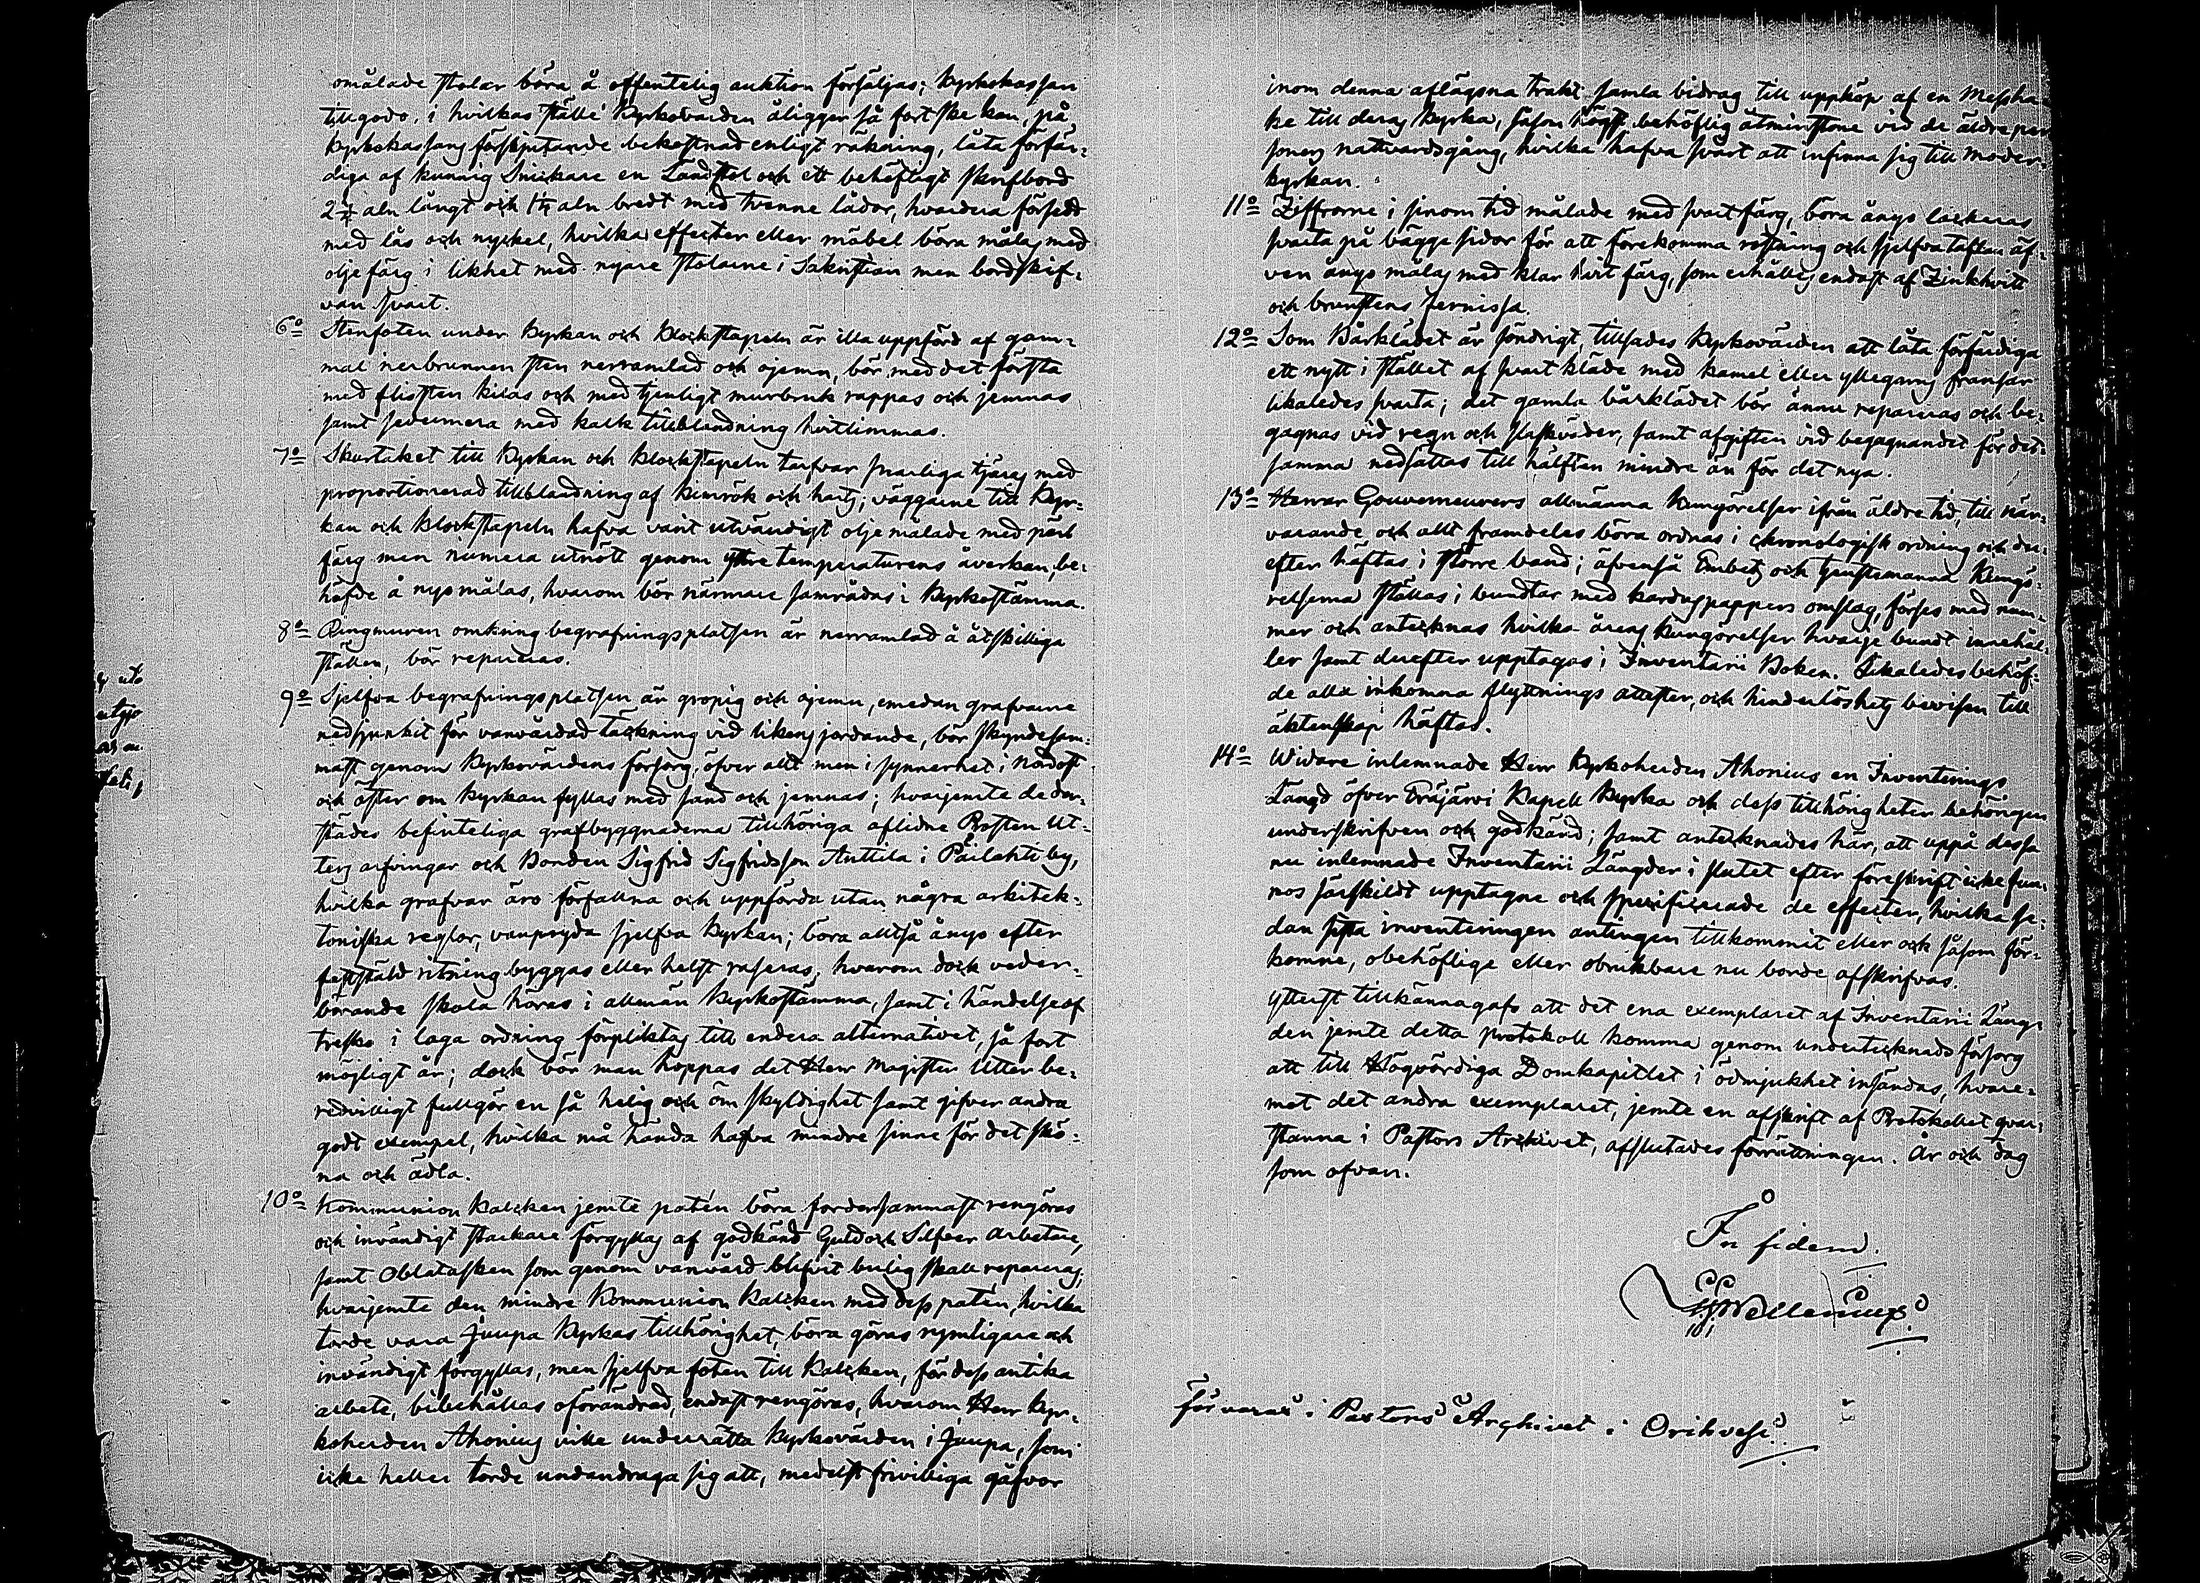 omålade stolar böra å offentelig auktion försäljas; Kyrkokassan
till godo, i hvilkas ställe Kyrkovärden åligger så fort ske kan, på
Kyrkokassans förskjutande bekostnad enligt räkning, låta förfär-
diga af kunnig Snickare en Länstol och ett behöfligt skrifbord
2 1/4 aln långt och 1 1/4 aln bredt med tvenne lådor, hvardera försedd
med lås och nyckel, hvilka effecter eller möbel böra målas med
oljefärg i likhet med nyare stolarne i Sakristian men bordskif-
van svart.
6o Stenfoten under Kyrkan och Klockstapeln är illa uppförd af gam-
mal neibrunnen sten nerramlad och ojemn, bör med det första
med flissten kilas och med tjenligt murbruk rappas och jemnas
samt sedermera med kalk tillblandning hvitlimmas.
7o Skurtaket till Kyrkan och Klockstapeln tarfvar snarliga tjäras med
proportionerad tillblandning af kimrök och harts; väggarne till Kyr-
kan och Klockstapeln hafva varit utvändigt oljemålade med pärl
färg men numera utnött genom yttre temperaturens åverkan, be-
höfde å nyo målas, hvarom bör närmare samrådas i Kyrkostämma.
8o Ringmuren omkring begrafningsplatsen är nerramlad å åtskilliga
ställen, bör repareras.
9o Sjelfva begrafningsplatsen är gropig och ojemn, emedan grafvarne
nedsjunkit för vanvårdad täckning vid likens jordande, bör skyndesam-
mast genom Kyrkovärdens försorg, öfver allt men i synnerhet i nordost
och öster om Kyrkan fyllas med sand och jemnas; hvarjemte de der-
städes befinteliga grafbyggnaderna tillhöriga aflidne Prosten Ut-
ters arfvingar och Bonden Sigfrid Sigfridsson Anttila i Päilahti by,
hvilka grafvar äro förfallna och uppförda utan några arkitek-
toniska reglor, vanpryda sjelfva Kyrkan; böra alltså ånyo efter
fastställd ritning byggas eller helst raseras, hvarom dock veder-
börande skola höras i allmän Kyrkostämma, samt i händelse af
tresko i laga ordning förpliktas till endera alternativet, så fort
möjligt är; dock bör man hoppas det Herr Magister Utter be-
redvilligt fullgör en så helig och öm skyldighet samt gifver andra
godt exempel, hvilka må hända hafva mindre sinne för det skö-
na och ädla.
10o Kommunion kalcken jemte patén böra fordersammast rengöras
och invändigt starkare förgyllas af godkänd Guld och Silfver Arbetare,
samt Oblatasken som genom vanvård blifvit bulig skall repareras,
hvarjemte den mindre Kommunion kalcken med dess patén, hvilka
torde vara Juupa Kyrkas tillhörighet, böra göras rymligare och
invändigt förgyllas, men sjelfva foten till kalcken, för dess antika
arbete, bibehållas oförändrad, endast rengöras, hvarom Herr Kyr-
koherden Ahonius ville underrätta Kyrkovärden i Juupa, som
icke heller torde undandraga sig att, medelst frivilliga gåfvor
inom denna aflägsna trakt samla bidrag till uppköp af en Messha-
ke till deras Kyrka, såsom högst behöflig åtminstone vid de äldre per
soners nattvardsgång, hvilka hafva svårt att infinna sig till moder-
kyrkan.
11o Ziffrorne i sinom tid målade med svart färg, böra ånyo lackeras
svarta på bägge sidor för att förekomma rostning och sjelfva taflan äf-
ven ånyo målas med klar hvit färg, som erhålles endast af Zinkhvitt
och brunstens fernissa.
12o Som Bårklädet är söndrigt, tillsades Kyrkovärden att låta förfärdiga
ett nytt i stället af svart kläde med kamel eller yllegarns fransar
likaledes svarta; det gamla bårklädet bör ännu repareras och be-
gagnas vid regn och slaskväder, samt afgiften vid begagnandet för det-
samma nedsättas till hälften mindre än för det nya.
13o Herrar Gouverneurers allmänna kungörelser ifrån äldre tid, till när-
varande och allt framdeles böra ordnas i chronologisk ordning och der-
efter häftas i större band; äfvenså Embets och tjenstemanna Kungö-
relserna ställas i bundtar med karduspappers omslag, förses med num-
mer och antecknas hvilka årens kungörelser hvarje bundt innehål-
ler samt derefter upptagas i Inventarii Boken. Likaledes behöf-
de alla inkomna flyttnings attester, och hinderlöshets bevisen till
äktenskap häftas.
14o Widare inlemnade Herr Kyrkoherden Ahonius en Inventerings
Längd öfver Eräjärvi Kapell Kyrka och dess tillhörigheter behörigen
underskrifven och godkänd; samt antecknades här, att uppå dessa
nu inlemnade Inventarii Längder i slutet efter föreskrift icke fun-
nos särskildt upptagne och specificerade de effecter, hvilka se-
dan sista inventeringen antingen tillkommit eller ock såsom för-
komne, obehöflige eller obrukbare nu borde afskrifvas.
Ytterst tillkännagafs att det ena exemplaret af Inventarii Läng-
den jemte detta protokoll komma genom undertecknads försorg
att till Högvördiga Domkapitlet i ödmjukhet insändas, hvare-
mot det andra exemplaret, jemte en afskrift af Protokollet qvar-
stanna i Pastors Archivet, afslutades förrättningen. År och dag
som ofvan.
In fidem.
Förvaras i Pastors Archivet i Orihvesi.